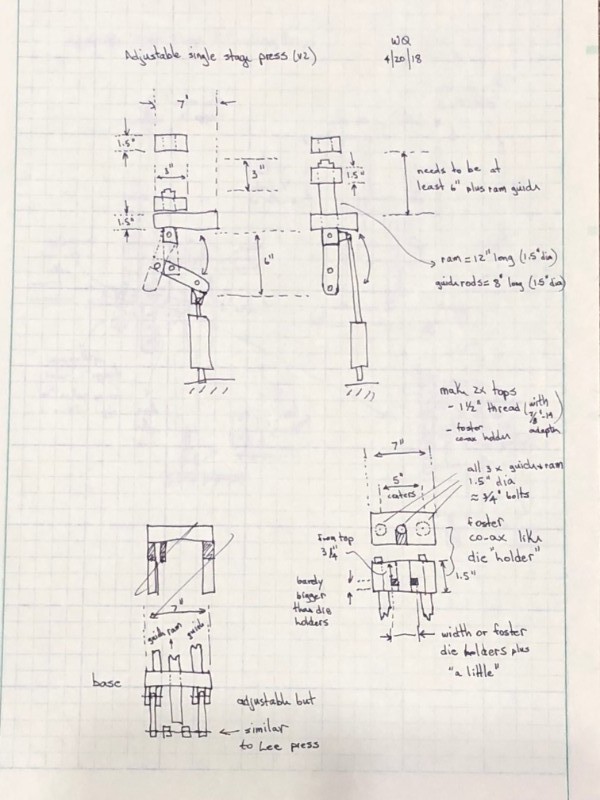 Adjustable single stage press (v2)
WQ
4/20/18
7"
1.5"
3"
3"
1.5"
6"
1.5"
needs to be at
least 6" plus ram guide
ram = 12" long (1.5" dia)
guide rods = 8" long (1.5" dia)
make 2x tops
- 1 1/2" thread (with 7/8"-14 adapter)
- foster
co-ax holder
7"
5"
centers
all 3 x guide + ram
1.5" dia
≈ 3/4" bolts
foster
co-ax like
die "holder"
from top
3/4"
1.5"
barely
bigger
than die
holders
width or foster
die holders plus
"a little"
7"
guide ram guide
base
adjustable but
similar
to Lee press